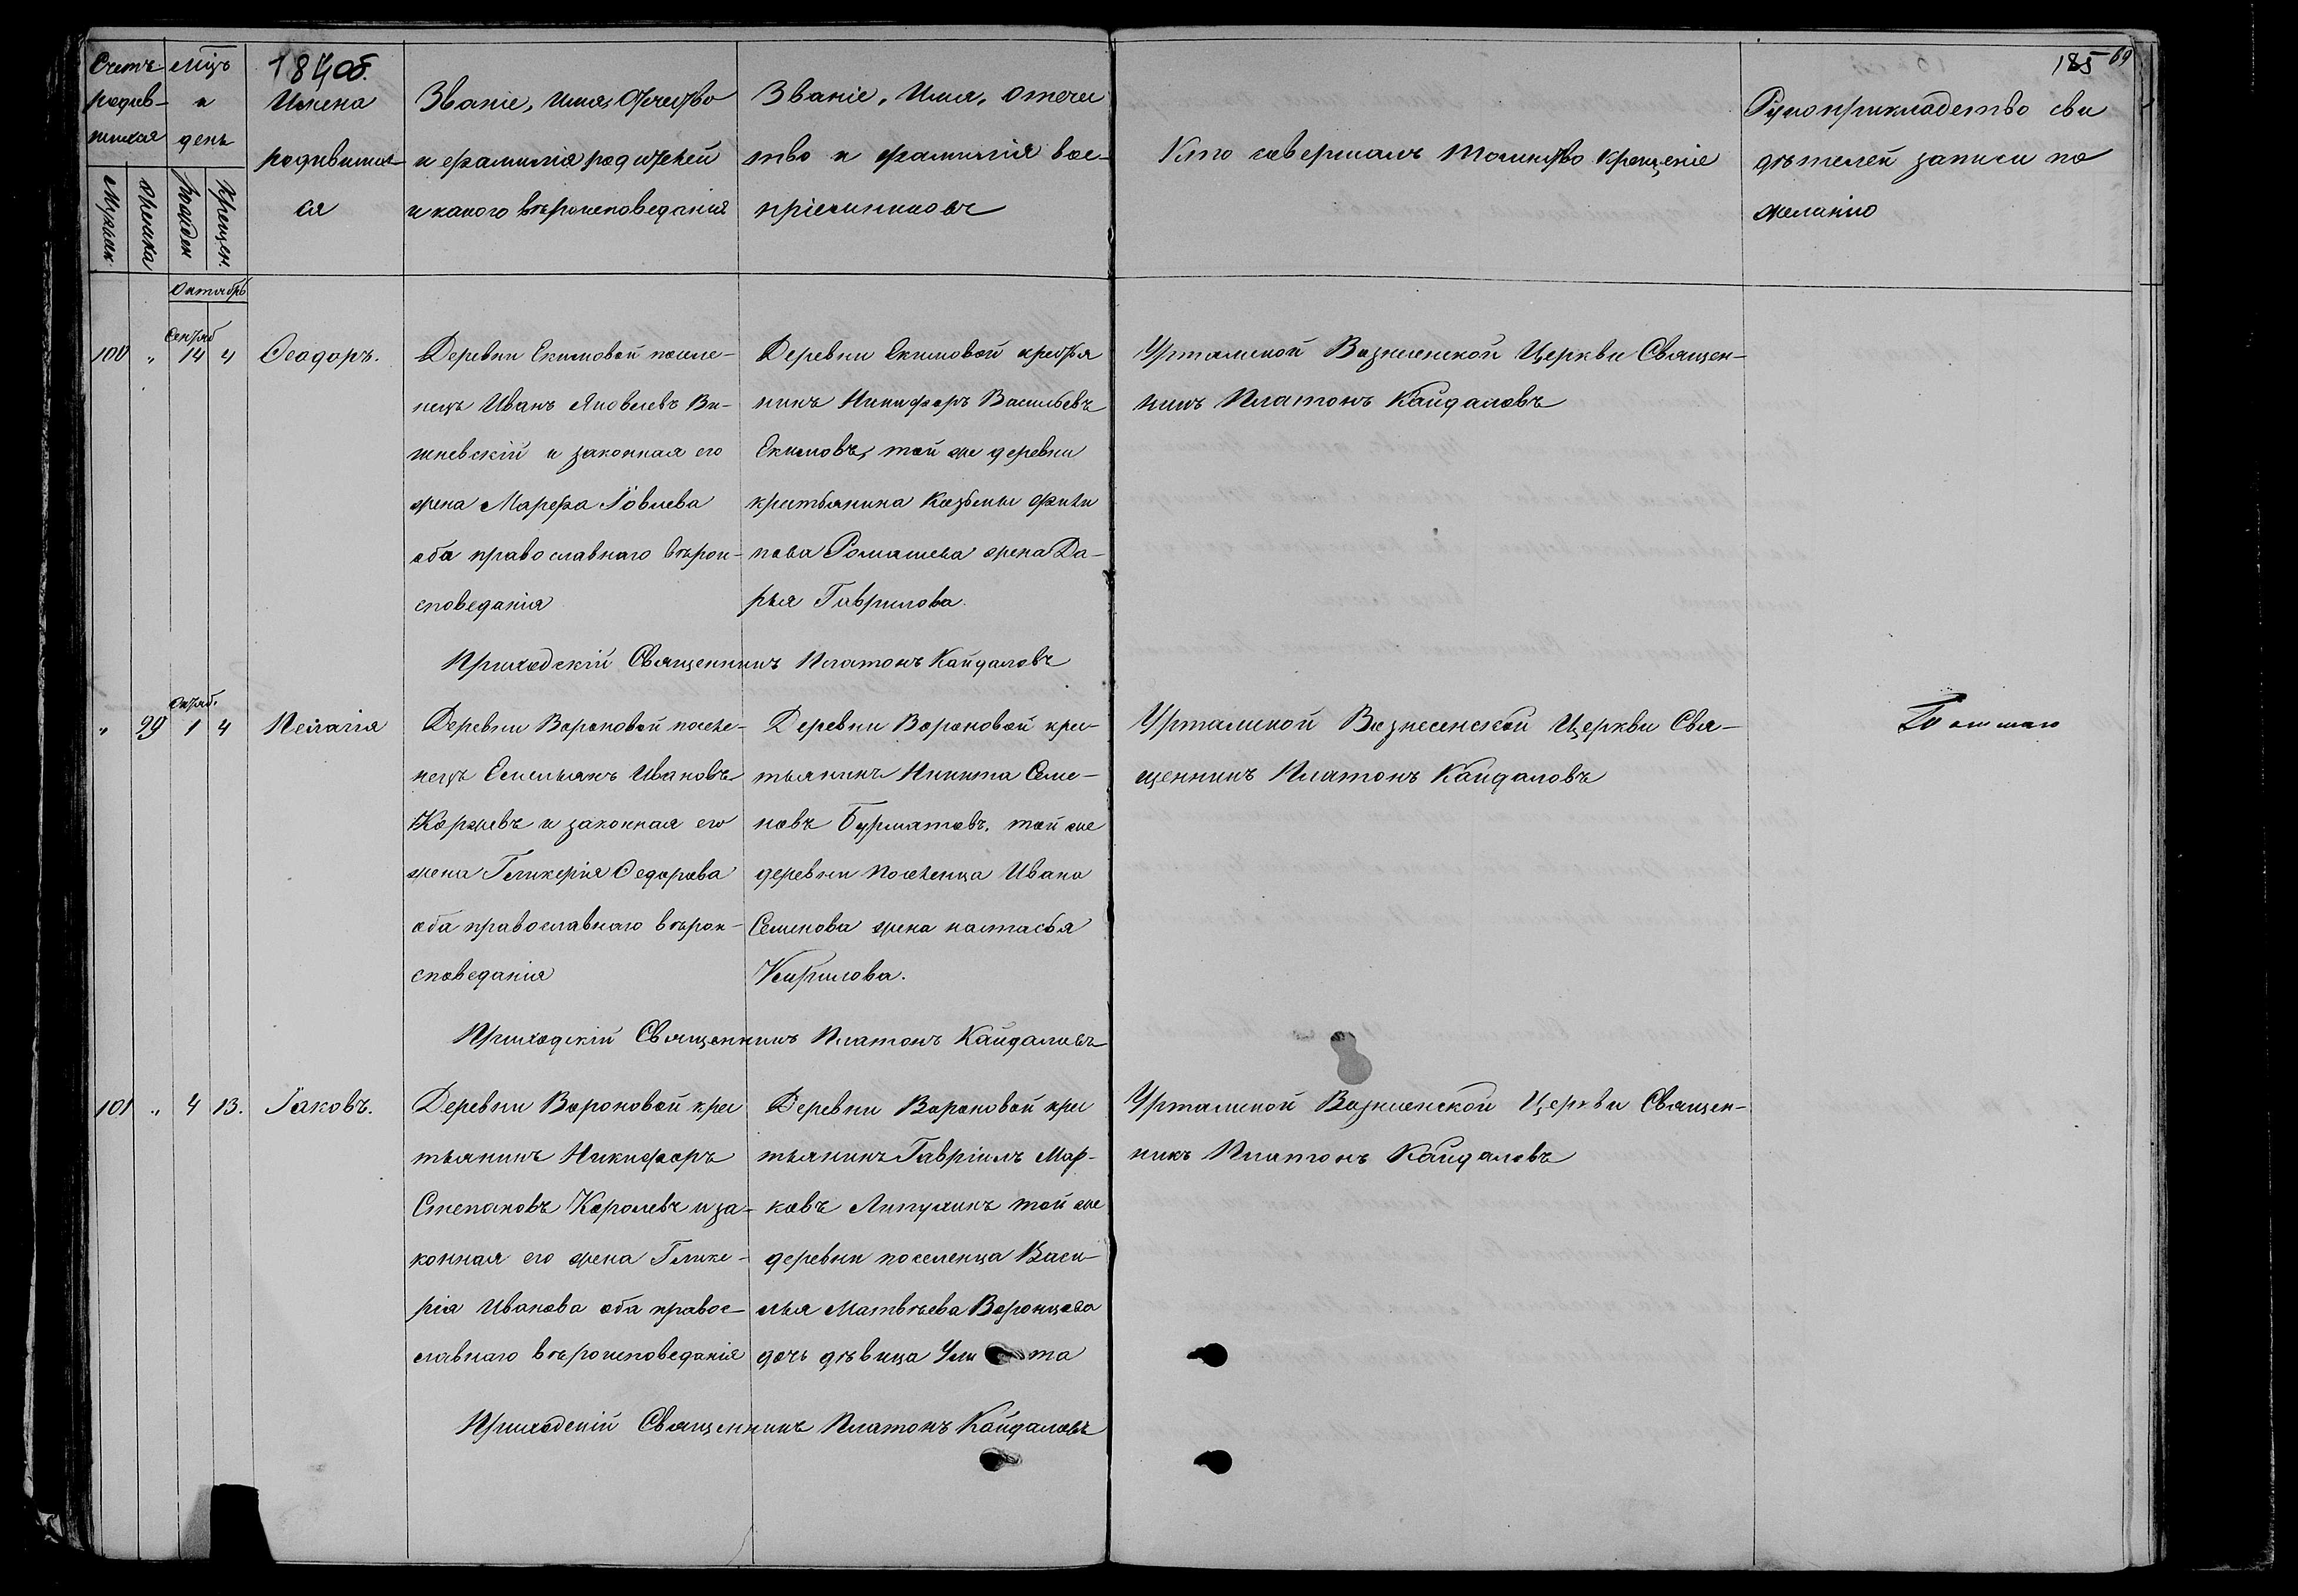 184об.
185 69
Счетъ родив-
шихся
Мужеск.
Женска
Мцъ
и
день
Рожден
Крещен.
Имена
родивших
ся
Званіе, имя, Отчество
и фамилія родителей
и какого вѣроисповеданія
Званіе, Имя, отече
ство и фамилія вос-
пріемниковъ
Кто совершалъ таинство крещеніе
Рукоприкладство сви
дѣтелей записи по
желанію
Октябрь
100 " Сентяб 14 4 Ѳеодоръ.
Деревни Екимовой после-
нецъ Иванъ Яковлевъ Ви-
шневскій и законная его
жена Марфа Іовлева
оба православнаго вѣрои-
споведанія
Деревни Екимовой крестья
нинъ Никифоръ Васильевъ
Екимовъ, той же деревни
крестьянина Козьмы Фили
пова Ромашева жена Да-
рья Гаврилова.
Урталиской Вознесенской Церкви Священ-
никъ Платонъ Кайдаловъ
Приходскій Священникъ Платонъ Кайдаловъ
" 99 Октяб. 1 4 Пелагія
Деревни Вороновой после-
нецъ Емельянъ Ивановъ
Коржевъ и законная его
жена Гликерія Ѳедорова
оба православнаго вѣрои-
споведанія
Деревни Вороновой крес-
тьянинъ Никита Семе-
новъ Бурматовъ, той же
деревни поселенца Ивана
Семенова жена настасья
Кирилова.
Урталиской Вознесенской Церкви Свя-
щенникъ Платонъ Кайдаловъ
Приходскій Священникъ Платонъ Кайдаловъ
101 " 4 13. Іаковъ.
Деревни Вороновой крес
тьянинъ Никифоръ
Степановъ Королевъ и за-
конная его жена Глике-
рія Иванова оба правос-
лавнаго вѣроисповеданія
Деревни Вороновой крес
тьянинъ Гавріилъ Мар-
ковъ Липухинъ той же
деревни поселенца Васи-
лья Матвѣева Воронцова
дочь дѣвица
Урталиской Вознесенской Церкви Священ-
никъ Платонъ Кайдаловъ
Приходскій Священникъ Платонъ Кайдаловъ